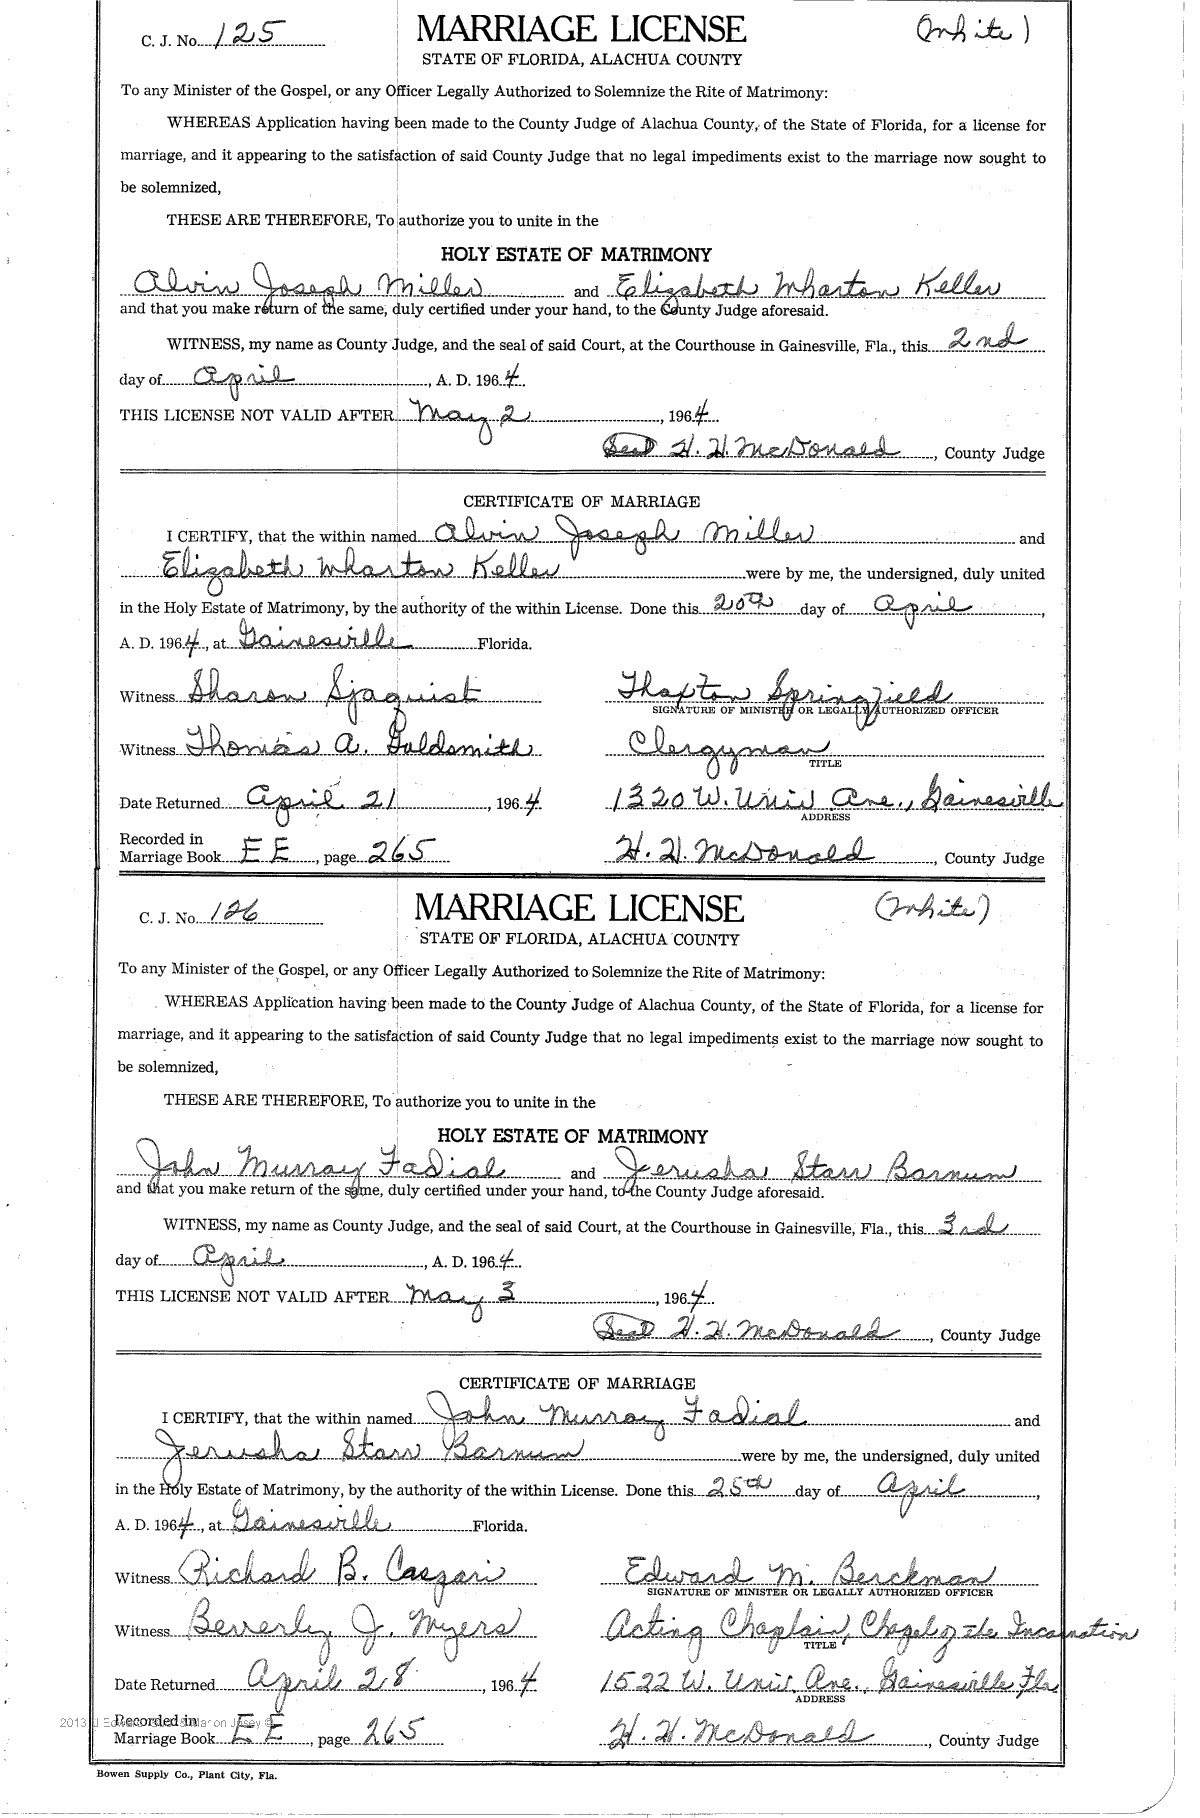 C. J. No. 125 MARRIAGE LICENSE (White)
STATE OF FLORIDA, ALACHUA COUNTY
To any Minister of the Gospel, or any Officer Legally Authorized to Solemnize the Rite of Matrimony:
WHEREAS Application having been made to the County Judge of Alachua County, of the State of Florida, for a license for
marriage, and it appearing to the satisfaction of said County Judge that no legal impediments exist to the marriage now sought to
be solemnized,
THESE ARE THEREFORE, To authorize you to unite in the
HOLY ESTATE OF MATRIMONY
Alvin Joseph Miller and Elizabeth Wharton Keller
and that you make return of the same, duly certified under your hand, to the County Judge aforesaid.
WITNESS, my name as County Judge, and the seal of said Court, at the Courthouse in Gainesville, Fla., this 2nd
day of April, A. D. 1964.
THIS LICENSE NOT VALID AFTER May 2, 1964.
Seal H. H. McDonald, County Judge
CERTIFICATE OF MARRIAGE
I CERTIFY, that the within named Alvin Joseph Miller and
Elizabeth Wharton Keller were by me, the undersigned, duly united
in the Holy Estate of Matrimony, by the authority of the within License. Done this 20th day of April,
A. D. 1964, at Gainesville Florida.
Witness Sharon Sjaquist Thaxton Springfield
SIGNATURE OF MINISTER OR LEGALLY AUTHORIZED OFFICER
Witness Thomas A. Goldsmith Clergyman
TITLE
Date Returned April 21, 1964 1320 W. Univ Ave., Gainesville
ADDRESS
Recorded in
Marriage Book EE, page 265 H. H. McDonald, County Judge
C. J. No. 126 MARRIAGE LICENSE (White)
STATE OF FLORIDA, ALACHUA COUNTY
To any Minister of the Gospel, or any Officer Legally Authorized to Solemnize the Rite of Matrimony:
WHEREAS Application having been made to the County Judge of Alachua County, of the State of Florida, for a license for
marriage, and it appearing to the satisfaction of said County Judge that no legal impediments exist to the marriage now sought to
be solemnized,
THESE ARE THEREFORE, To authorize you to unite in the
HOLY ESTATE OF MATRIMONY
John Murray Fadial and Jerusha Starr Barnum
and that you make return of the same, duly certified under your hand, to the County Judge aforesaid.
WITNESS, my name as County Judge, and the seal of said Court, at the Courthouse in Gainesville, Fla., this 3rd
day of April, A. D. 1964.
THIS LICENSE NOT VALID AFTER May 3, 1964.
Seal H. H. McDonald, County Judge
CERTIFICATE OF MARRIAGE
I CERTIFY, that the within named John Murray Fadial and
Jerusha Starr Barnum were by me, the undersigned, duly united
in the Holy Estate of Matrimony, by the authority of the within License. Done this 25th day of April,
A. D. 1964, at Gainesville Florida.
Witness Richard B. Caspari Edward M. Berckman
SIGNATURE OF MINISTER OR LEGALLY AUTHORIZED OFFICER
Witness Beverly J. Myers Acting Chaplain, Chapel of the Incarnation
TITLE
Date Returned April 28, 1964 1522 W. Univ. Ave., Gainesville, Fla
ADDRESS
Recorded in
Marriage Book EE, page 265 H. H. McDonald, County Judge
Bowen Supply Co., Plant City, Fla.